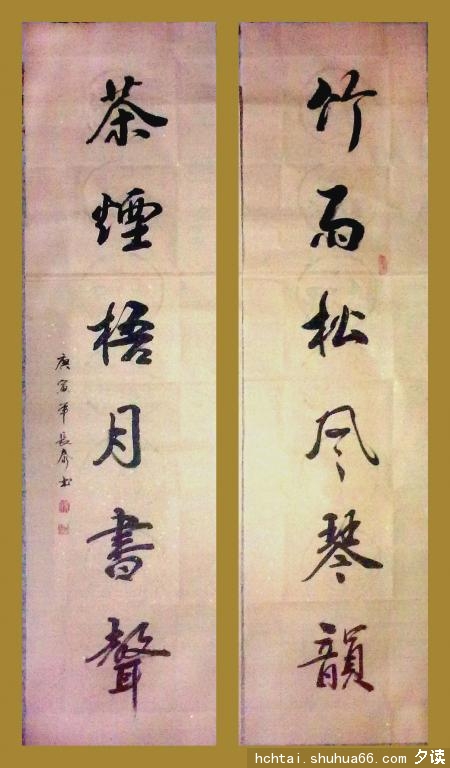 竹雨松风琴韻
茶煙梧月書聲
庚寅年長泰书
hchtai.shuhua66.com 夕读